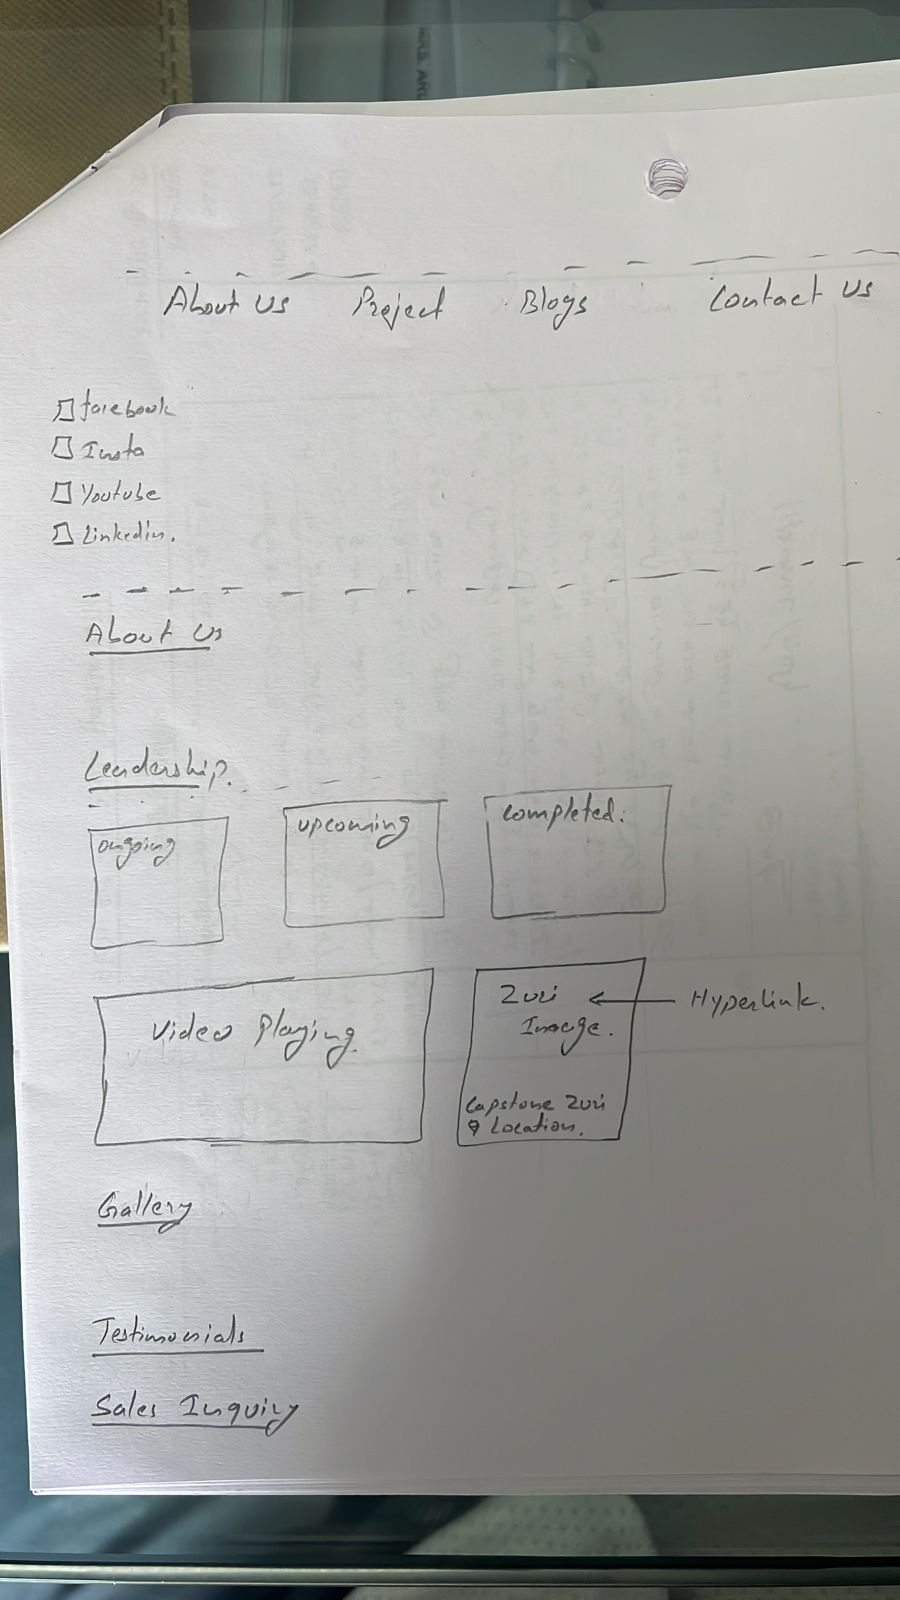 About Us Project Blogs Contact Us
facebook
Insta
Youtube
Linkedin.
About Us
Leadership.
ongoing upcoming completed:
Video Playing
Zuri
Image.
Hyperlink.
Capstone Zuri
Location.
Gallery
Testimonials
Sales Inquiry